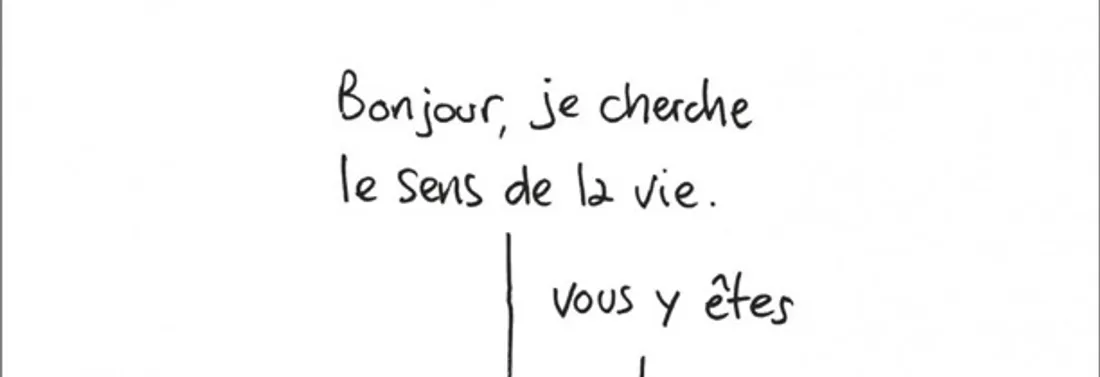 Bonjour, je cherche
le sens de la vie.
vous y êtes